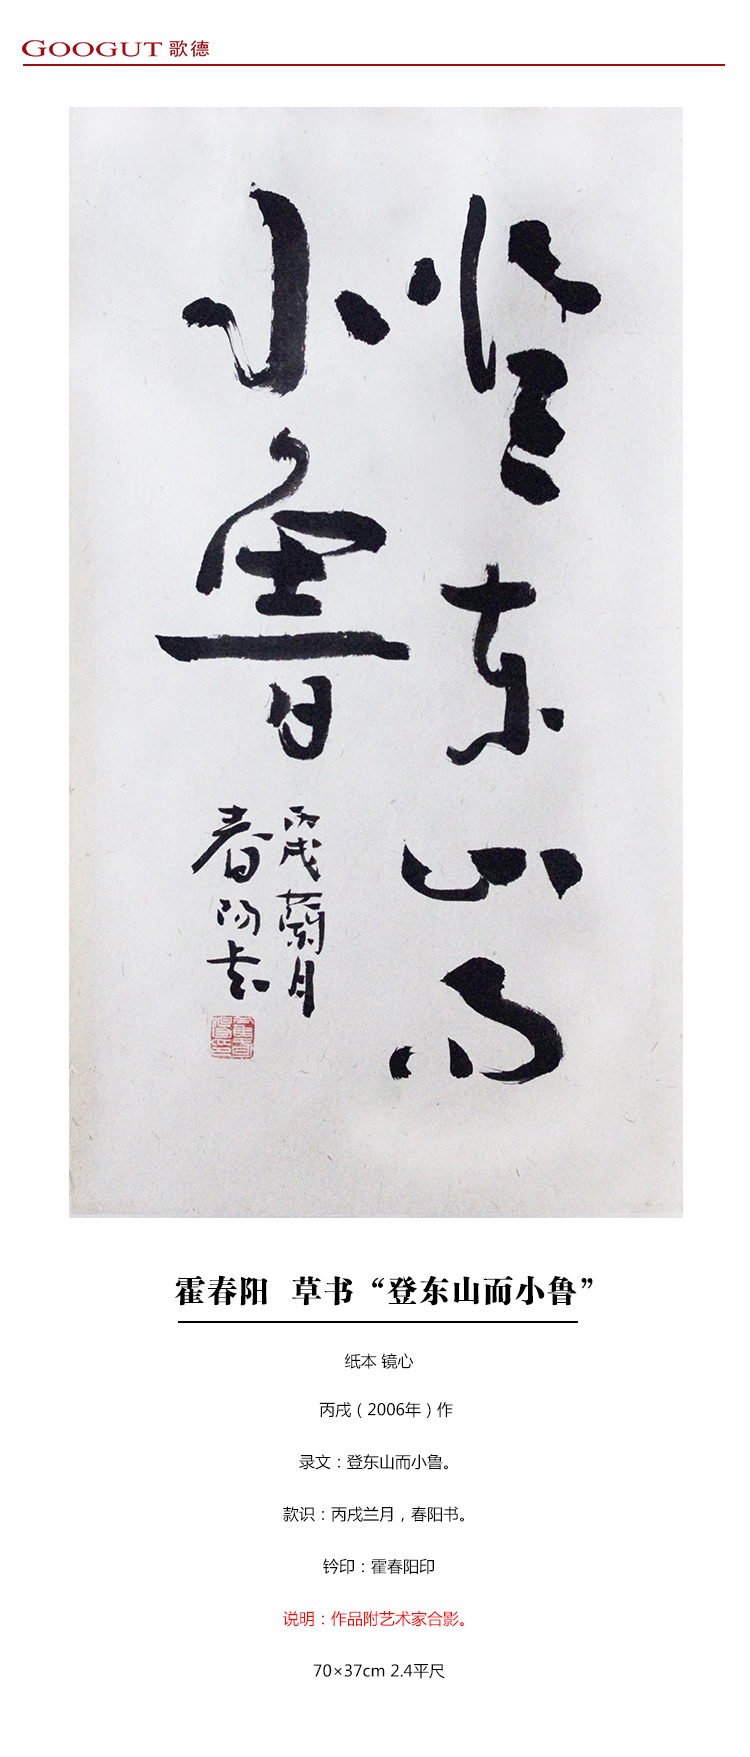 GOOGUT 歌德
登东山而
小魯
丙戌蘭月
春陽书
霍春陽印
霍春阳 草书“登东山而小鲁”
纸本 镜心
丙戌（2006年）作
录文：登东山而小鲁。
款识：丙戌兰月，春阳书。
钤印：霍春阳印
说明：作品附艺术家合影。
70×37cm 2.4平尺